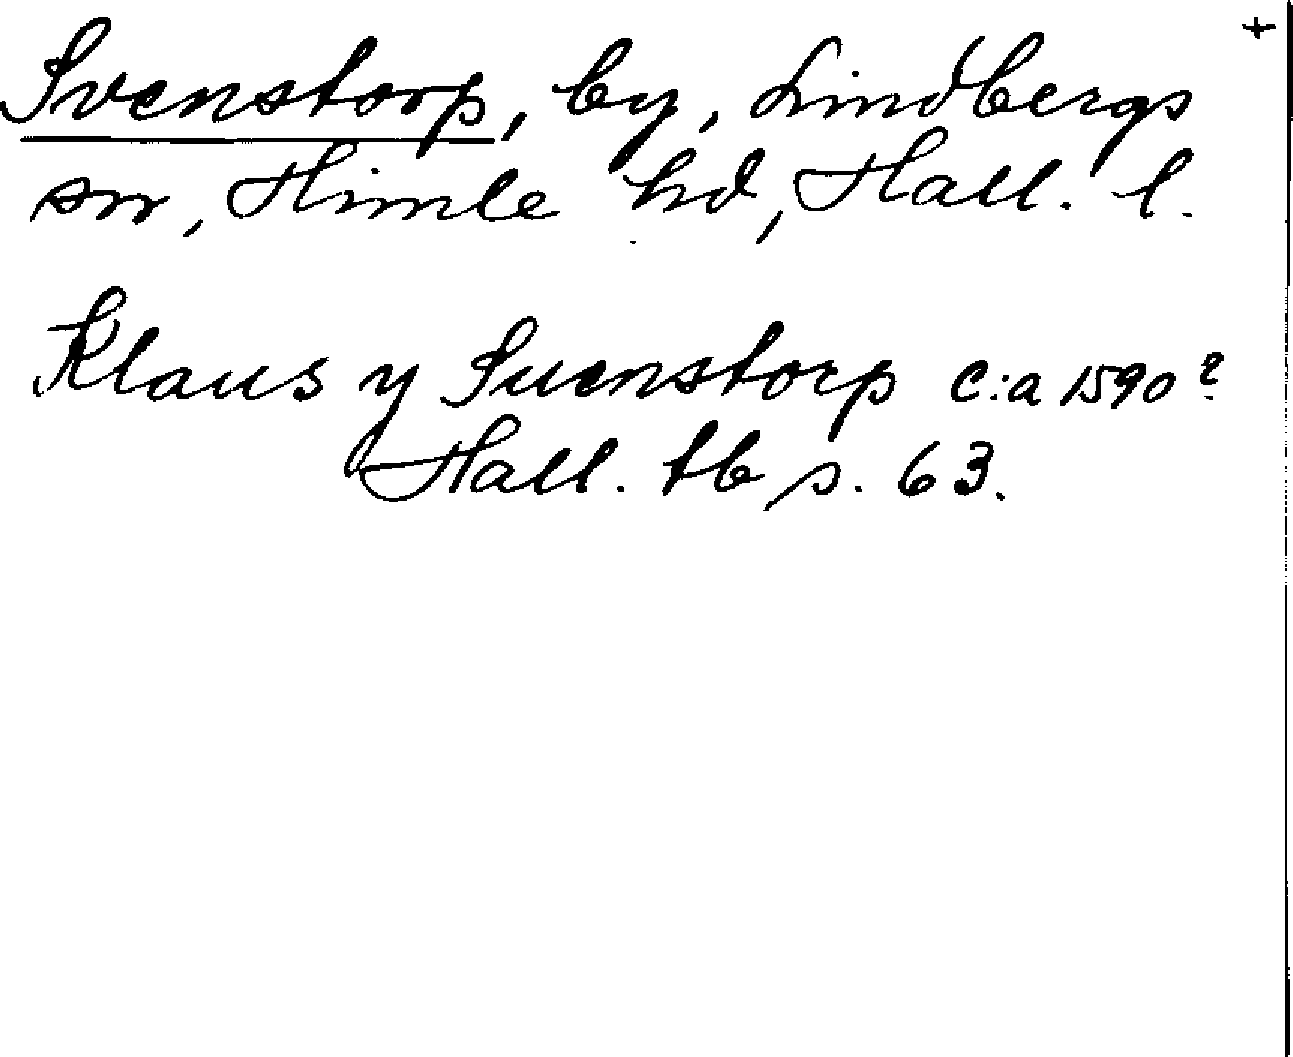 +
Svenstorp, by, Lindbergs
sn, Himle hd, Hall. l.
Klaus y Suenstorp c:a 1590?
Hall. tb s. 63.